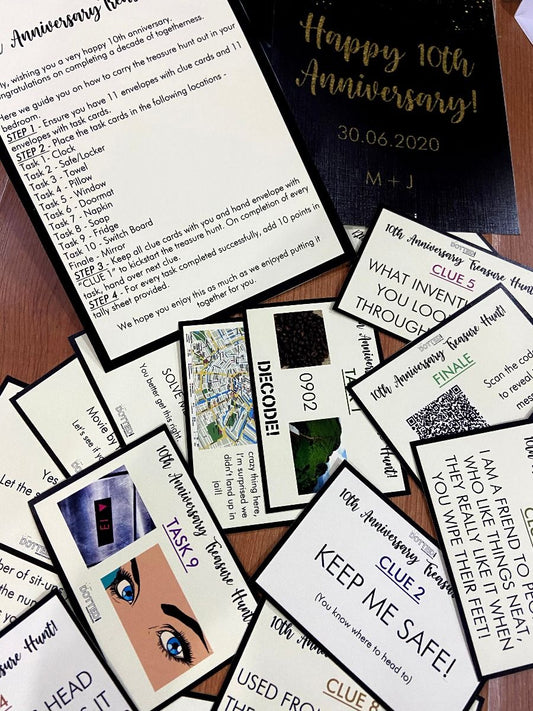 Anniversary Treasure
ly, wishing you a very happy 10th anniversary.
ngratulations on completing a decade of togetherness.
Here we guide you on how to carry the treasure hunt out in your
bedroom.
STEP 1 - Ensure you have 11 envelopes with clue cards and 11
envelopes with task cards.
STEP 2 - Place the task cards in the following locations -
Task 1 - Clock
Task 2 - Safe/Locker
Task 3 - Towel
Task 4 - Pillow
Task 5 - Window
Task 6 - Doormat
Task 7 - Napkin
Task 8 - Soap
Task 9 - Fridge
Task 10 - Switch Board
Finale - Mirror
STEP 3 - Keep all clue cards with you and hand envelope with
"CLUE 1" to kickstart the treasure hunt. On completion of every
task, hand over next clue.
STEP 4 - For every task completed successfully, add 10 points in
tally sheet provided.
We hope you enjoy this as much as we enjoyed putting it
together for you.
Happy 10th
Anniversary!
30.06.2020
M + J
10th Anniversary Treasure Hunt!
CLUE 5
WHAT INVENTI
YOU LOO
THROUGH
10th Anniversary Treasure Hunt!
FINALE
Scan the code
to reveal
mess
10th
CL
I AM A FRIEND TO PEO
WHO LIKE THINGS NEAT.
THEY REALLY LIKE IT WHEN
YOU WIPE THEIR FEET!
DECODE!
0902
TASK
Hunt!
SOLVE
You better get this right,
crazy thing here,
I'm surprised we
didn't land up in
jail!
Movie by
Let's see if yo
Yes
Let the s
mber of sit-up
the num
10th Anniversary Treasure Hunt!
TASK 9
E1
10th Anniversary Treasure
CLUE 2
KEEP ME SAFE!
(You know where to head to)
easure Hunt!
4
HEAD
IT
10th Anniversary
CLUE 8
USED FRO